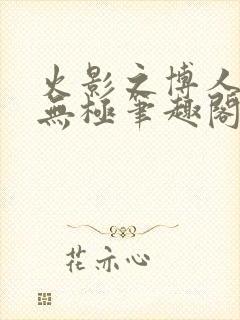 火影之博人
無極筆趣閣
花亦心